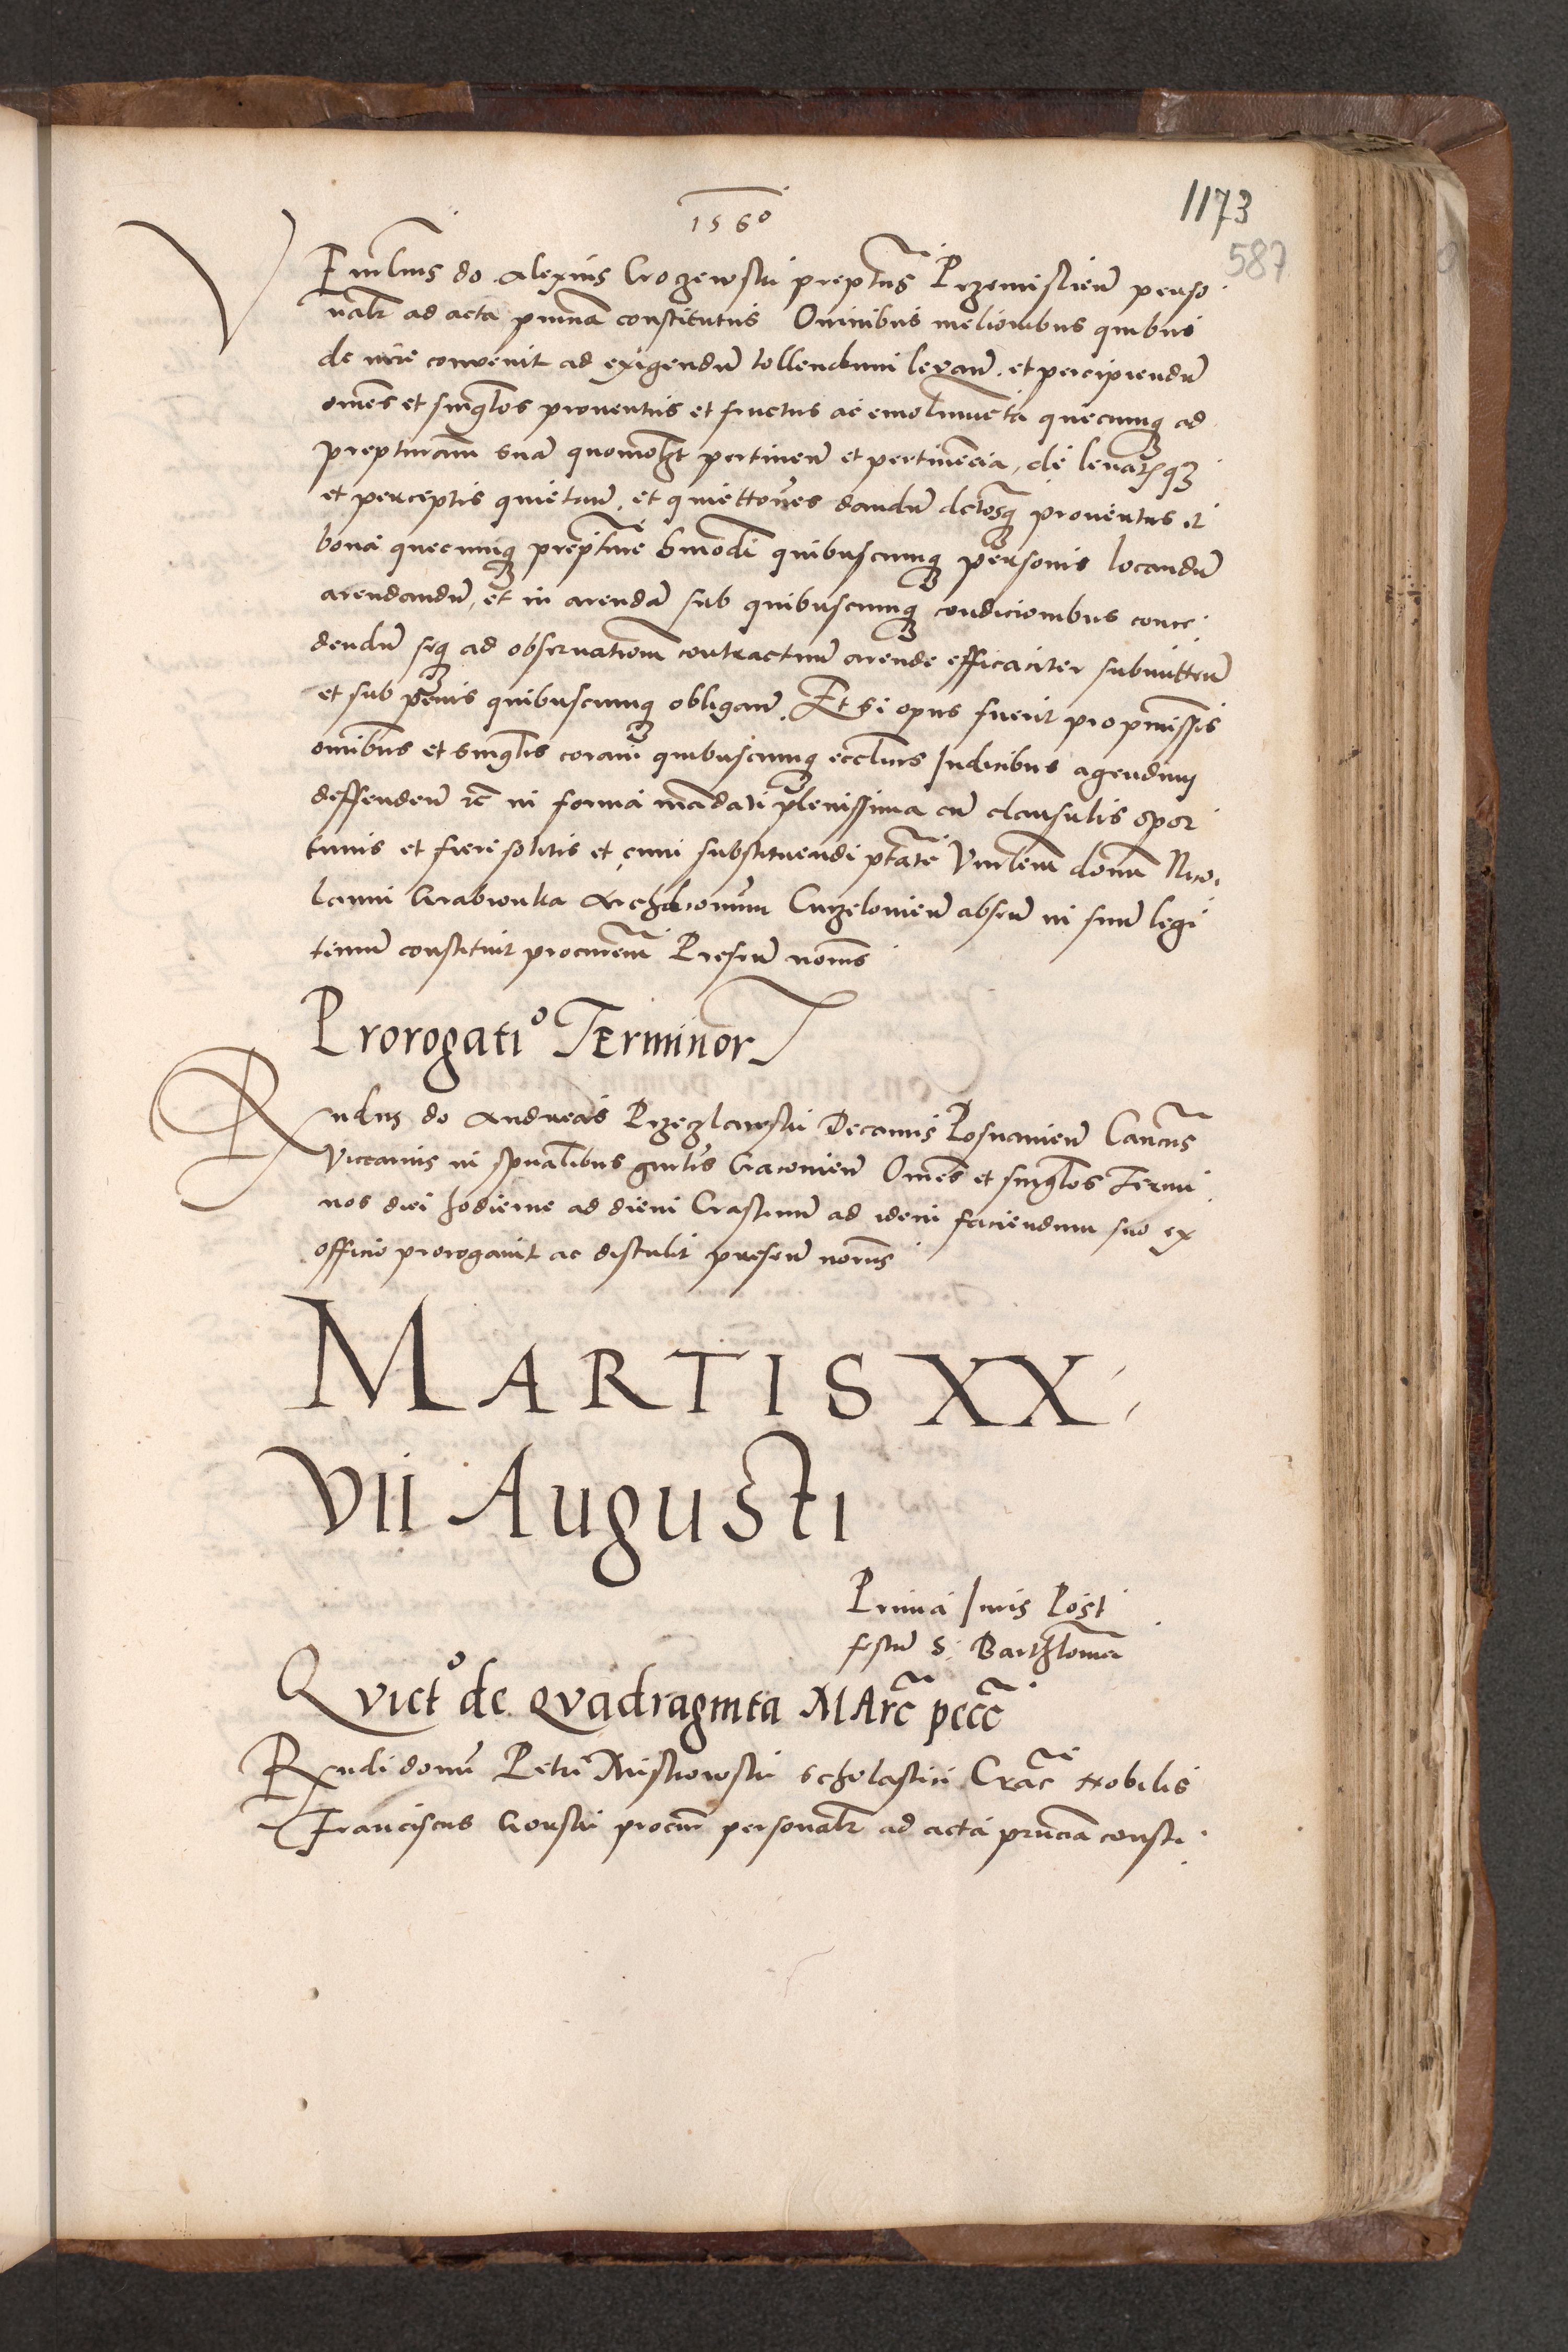 1560
1173
587
VEnerlis do Alexius Grozewski prepltus Przemislien perso
nalr ad acta pnna constitutus Omnibus melioribus quibus
de iure convenit ad exigendu tollendum levan et percipiendu
omes et singlos proventus et fructus ac emolumeta quecumq ad
preptturam sua quomolt pertinen et pertinecia, de levatisq
et perceptis quietan, et quiettones dandu dctosq proventus et
bona quecumq preptture hmodi quibuscumq personis locandu
arendandu, et in arenda sub quibuscumq condicionibus conce
dendu seq ad observationem contractuum arende efficaciter submitten
et sub penis quibuscumq obligan. Et si opus fuerit pro pmissis
omibus et singlis coram quibuscumq ecclicis Iudicibus agendum
deffenden etc in forma madati plenissima cu clausulis opor
tunis et fieri solitis et cum substituendi ptate Venrlem domu Nico
laum Grabionka Archidiaconum Curzelovien absen in suum legi
timum constituit procuratorem Presen nobis
Prorogatio Terminor
Rndus do Andreas Przeczlawski Decanus Posnanien Cancus
Vicarius in spualibus gnrlis Cracovien Omes et singlos Termi
nos diei hodierne ad diem Crastinum ad idem faciendum suo ex
officio prorogavit ac distulit presen nobis
MARTIS XX
VII Augusti
Prima Iuris Post
festum S. Bartholomei
Qvicto de Qvadraginta MArc pecc
Rndi domi Petri Miskowski scholastici Crac Nobilis
Franciscus Gorski procur personalr ad acta prncia consti